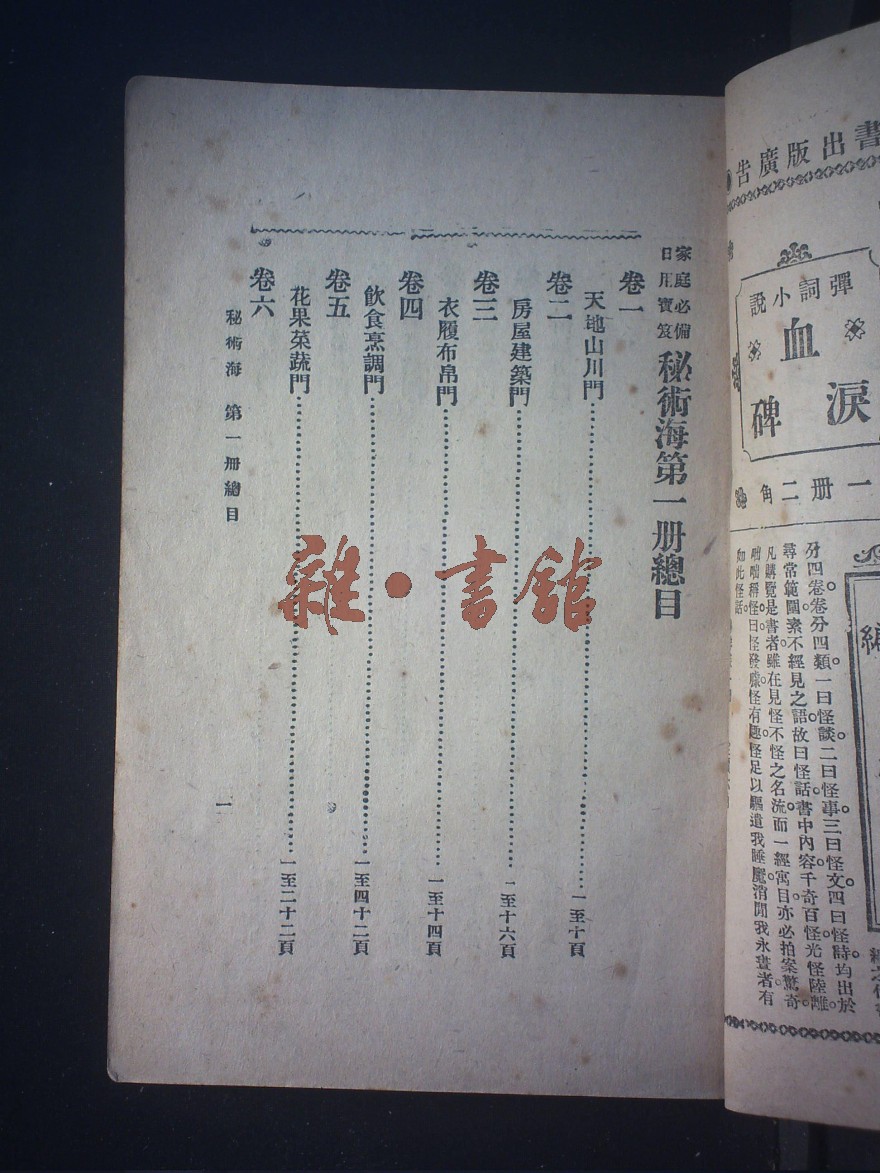 書出版廣告
彈詞小說
血淚碑
一册二角
分四卷卷分四類。一曰怪談二曰怪事三曰怪文四曰怪詩均出於
尋常範圍素不經見之語故曰怪話書中內容千奇百怪光怪陸離。
凡購覽是書者雖在見怪不怪之名流而一經寓目亦必拍案驚奇
咄咄稱怪曰怪發噱怪有趣怪足以驅遣我睡魔消閒我永晝者有
如此怪話。
家庭必備
日用寶笈
秘術海第一册總目
卷一
天地山川門⋯⋯一至十頁
卷二
房屋建築門⋯⋯一至十六頁
卷三
衣履布帛門⋯⋯一至十四頁
卷四
飲食烹調門⋯⋯一至四十二頁
卷五
花果菜蔬門⋯⋯一至二十二頁
卷六
秘術海 第一册總目
一
雜·書館